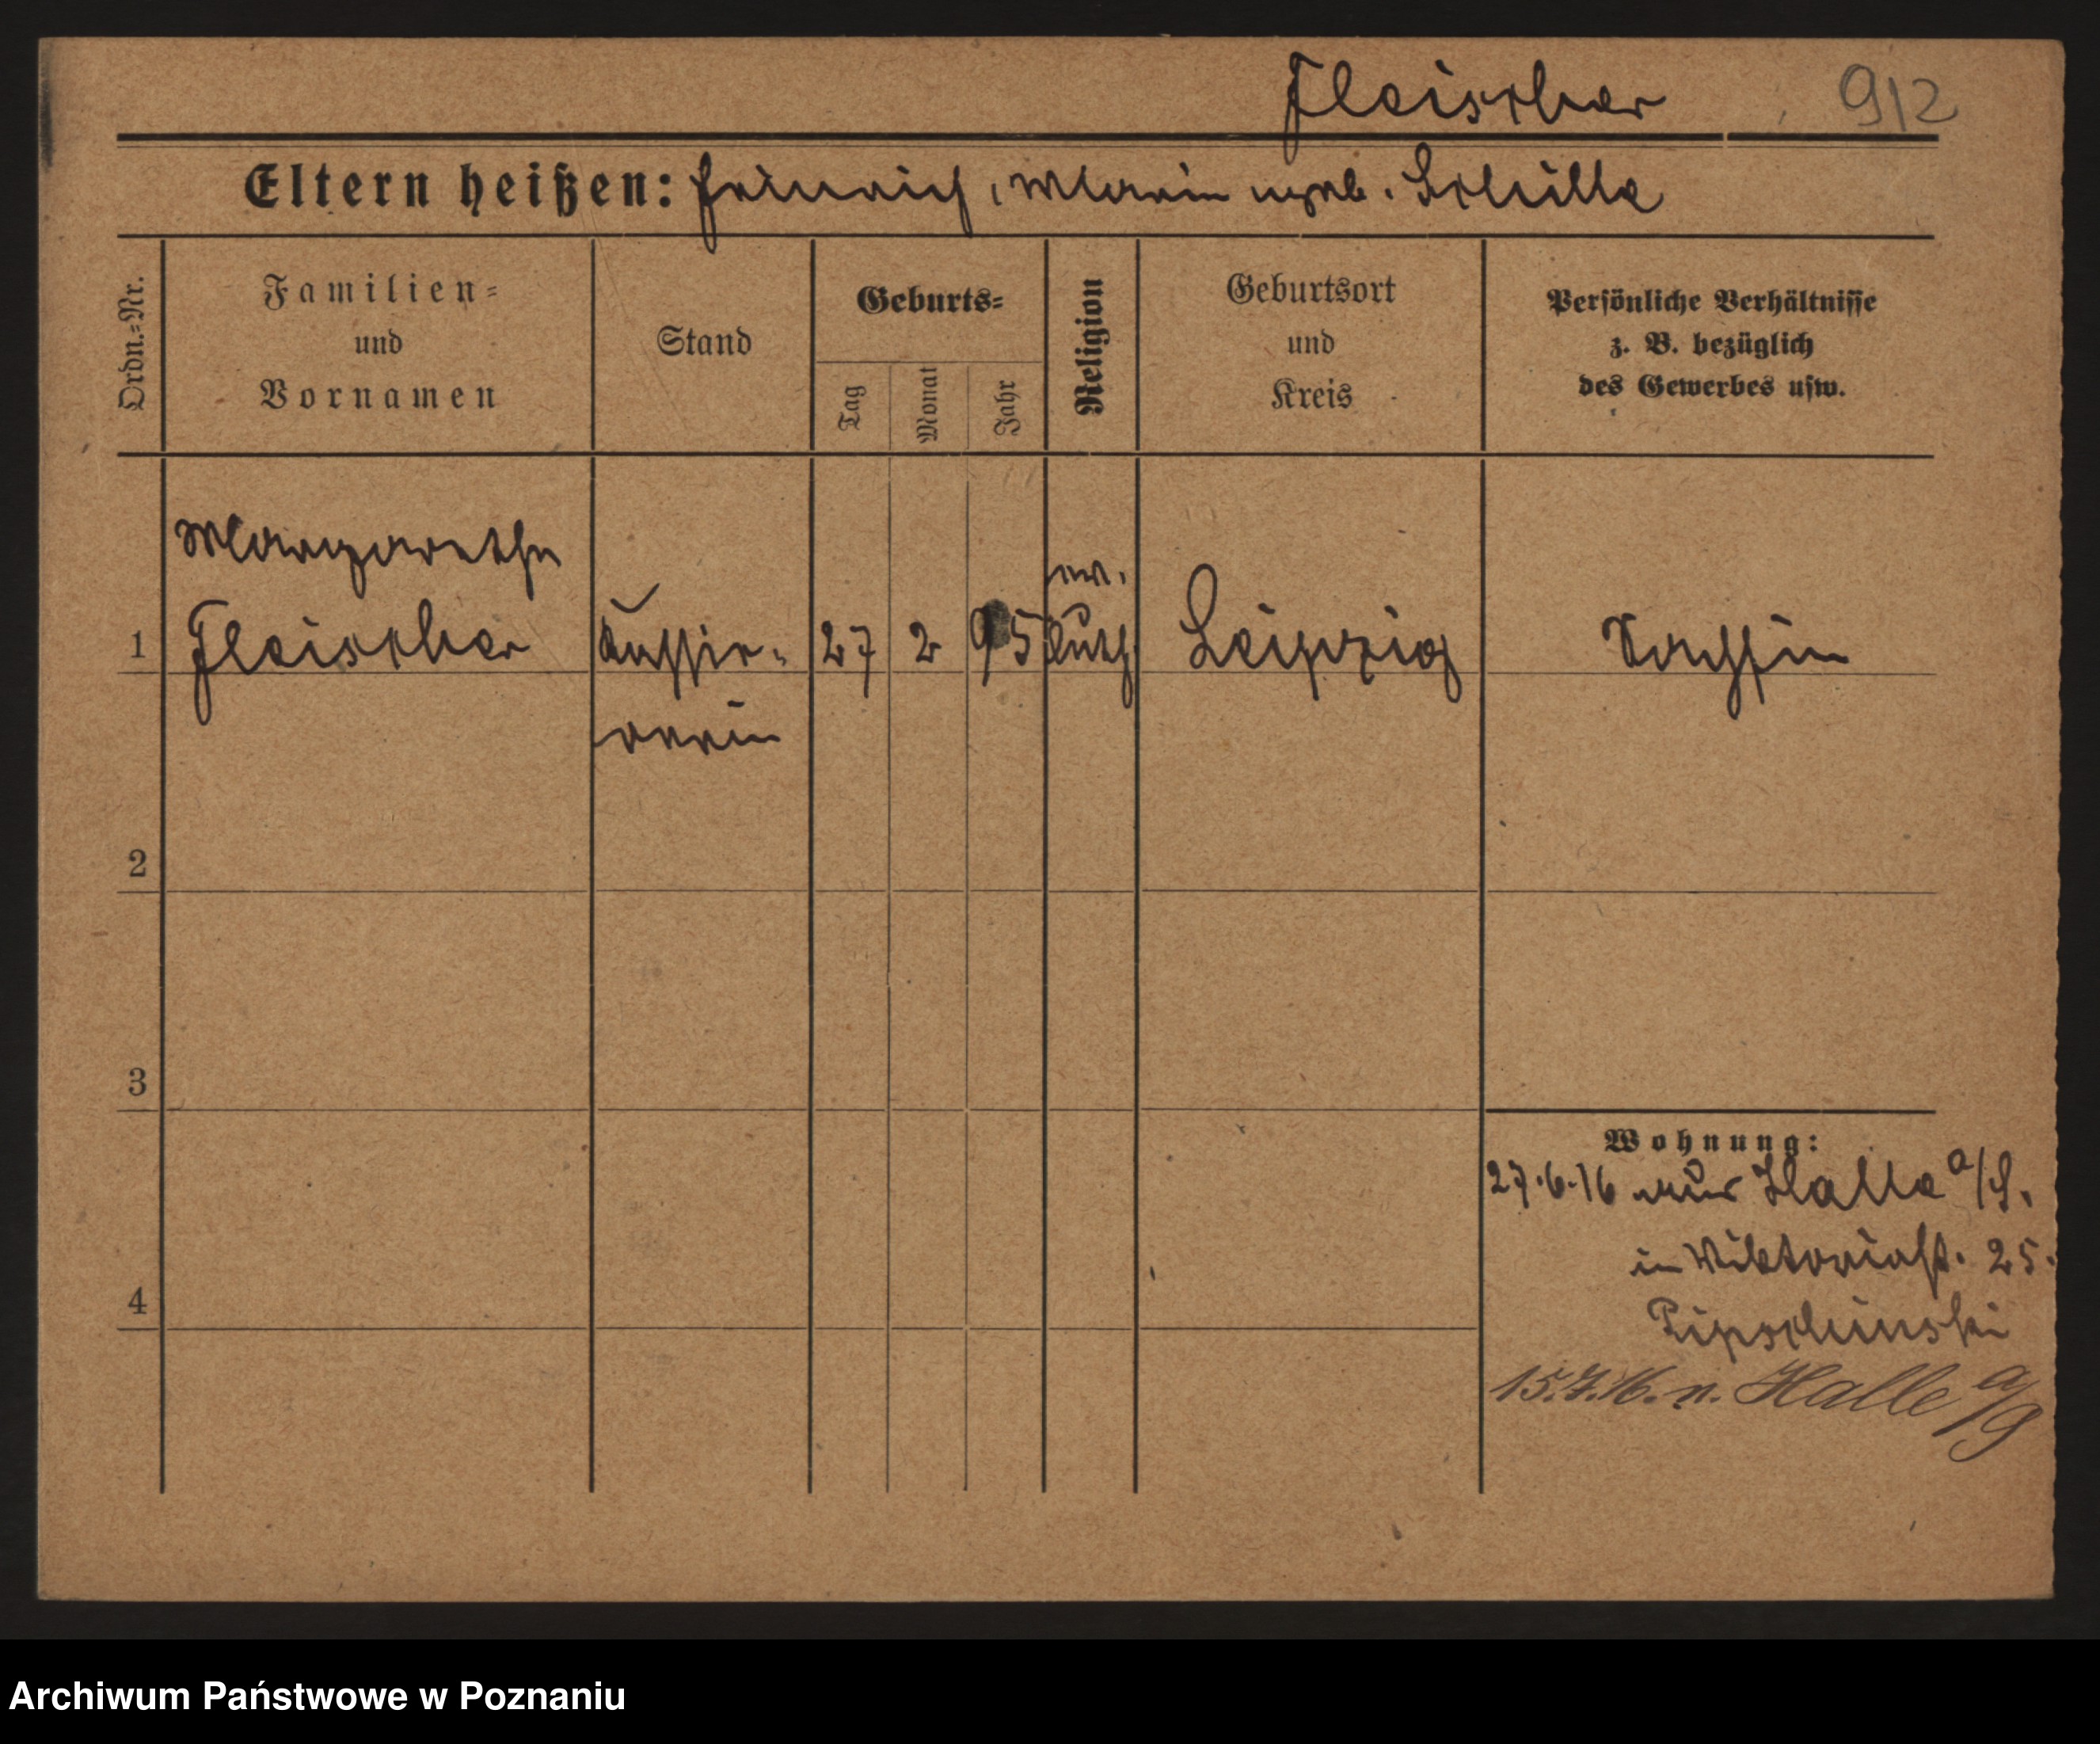 Fleischer 912
Eltern heißen: Heinrich, Marie geb. Schülle
Ordn.=Nr.
Familien=
und
Vornamen
Stand
Geburts=
Tag
Monat
Jahr
Religion
Geburtsort
und
Kreis
Persönliche Verhältnisse
z. B. bezüglich
des Gewerbes usw.
Margarethe
ev.
1 Fleischer Kassir- 27 2 95 luth Leipzig Sachsin
erin
2
3
4
Wohnung:
27.6.16 aus Halle a/S.
in Viktoriast. 25.
15.7.16. n. Halle a/S
Archiwum Państwowe w Poznaniu